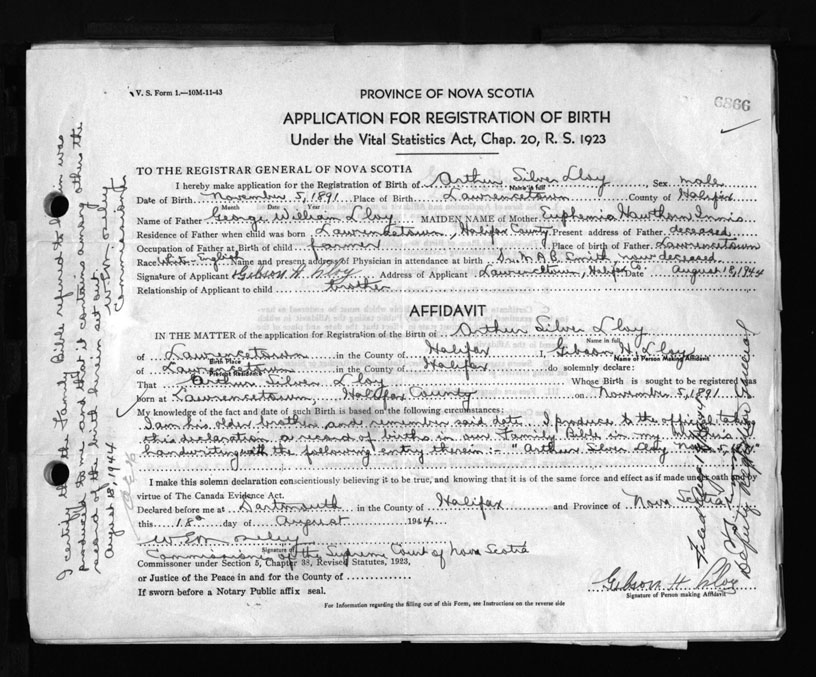 V. S. Form 1.—10M-11-43
6866
PROVINCE OF NOVA SCOTIA
APPLICATION FOR REGISTRATION OF BIRTH
Under the Vital Statistics Act, Chap. 20, R. S. 1923
TO THE REGISTRAR GENERAL OF NOVA SCOTIA
I hereby make application for the Registration of Birth of Arthur Silver Lloy Sex male
Name in full
Date of Birth November 5, 1891 Place of Birth Lawrencetown County of Halifax
Month Date Year
Name of Father George William Lloy MAIDEN NAME of Mother Euphemia Hawthorn Innis
Residence of Father when child was born Lawrencetown, Halifax County Present address of Father deceased
Occupation of Father at Birth of child farmer Place of birth of Father Lawrencetown
Race White-English Name and present address of Physician in attendance at birth Dr. M.A.B. Smith now deceased
Signature of Applicant Gibson H. Lloy Address of Applicant Lawrencetown, Halifax Co. Date August 18, 1944
Relationship of Applicant to child brother
AFFIDAVIT
IN THE MATTER of the application for Registration of the Birth of Arthur Silver Lloy
Name in full
of Lawrencetown in the County of Halifax I, Gibson H. Lloy
Birth Place Name of Person Making Affidavit
of Lawrencetown in the County of Halifax do solemnly declare:
Present Residence
That Arthur Silver Lloy Whose Birth is sought to be registered was
born at Lawrencetown, Halifax County on November 5, 1891
My knowledge of the fact and date of such Birth is based on the following circumstances:
I am his older brother and remember said date. I produce to the official taking
this declaration a record of births in our Family Bible in my mother's
handwriting with the following entry therein:- "Arthur Silver Lloy Nov. 5,
I make this solemn declaration conscientiously believing it to be true, and knowing that it is of the same force and effect as if made under oath and by
virtue of The Canada Evidence Act.
Declared before me at Dartmouth in the County of Halifax and Province of Nova Scotia
this 18th day of August 1944
Signature of
Commissioner of the Supreme Court of Nova Scotia
Commissioner under Section 5, Chapter 38, Revised Statutes, 1923,
or Justice of the Peace in and for the County of
If sworn before a Notary Public affix seal.
Gibson H Lloy
Signature of Person making Affidavit
For Information regarding the filling out of this Form, see Instructions on the reverse side
I certify that the Family Bible referred to herein was
produced to me and that it contains among others the
record of the birth herein set out.
August 18, 1944
Deputy Registrar General